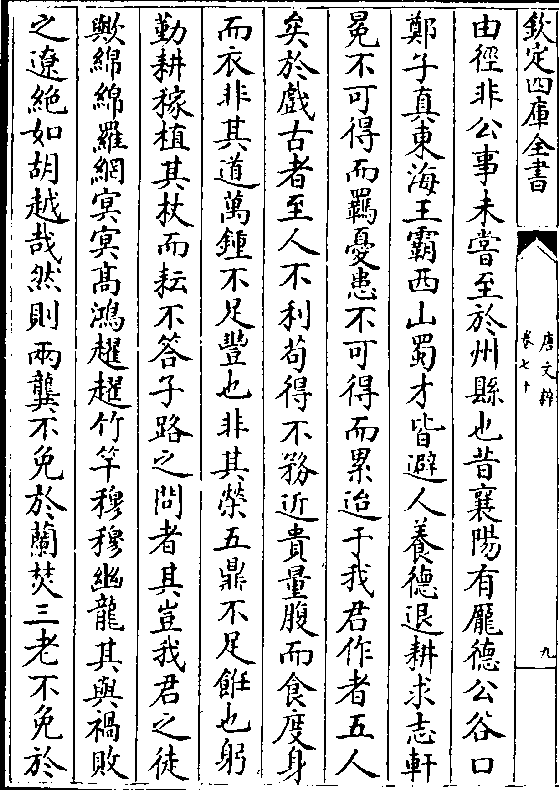 欽定四庫全書
唐文粹
卷七十
九
由徑非公事未嘗至於州縣也昔襄陽有龐德公谷口
鄭子真東海王霸西山蜀才皆避人養德退耕求志軒
冕不可得而羈憂患不可得而累迨于我君作者五人
矣於戲古者至人不利苟得不務近貴量腹而食度身
而衣非其道萬鍾不足豐也非其榮五鼎不足餁也躬
勤耕稼植其杖而耘不答子路之問者其豈我君之徒
歟綿綿羅網㝠㝠髙鴻趯趯竹竿穆穆幽龍其與禍敗
之遼絶如胡越哉然則兩龔不免於蘭焚三老不免於